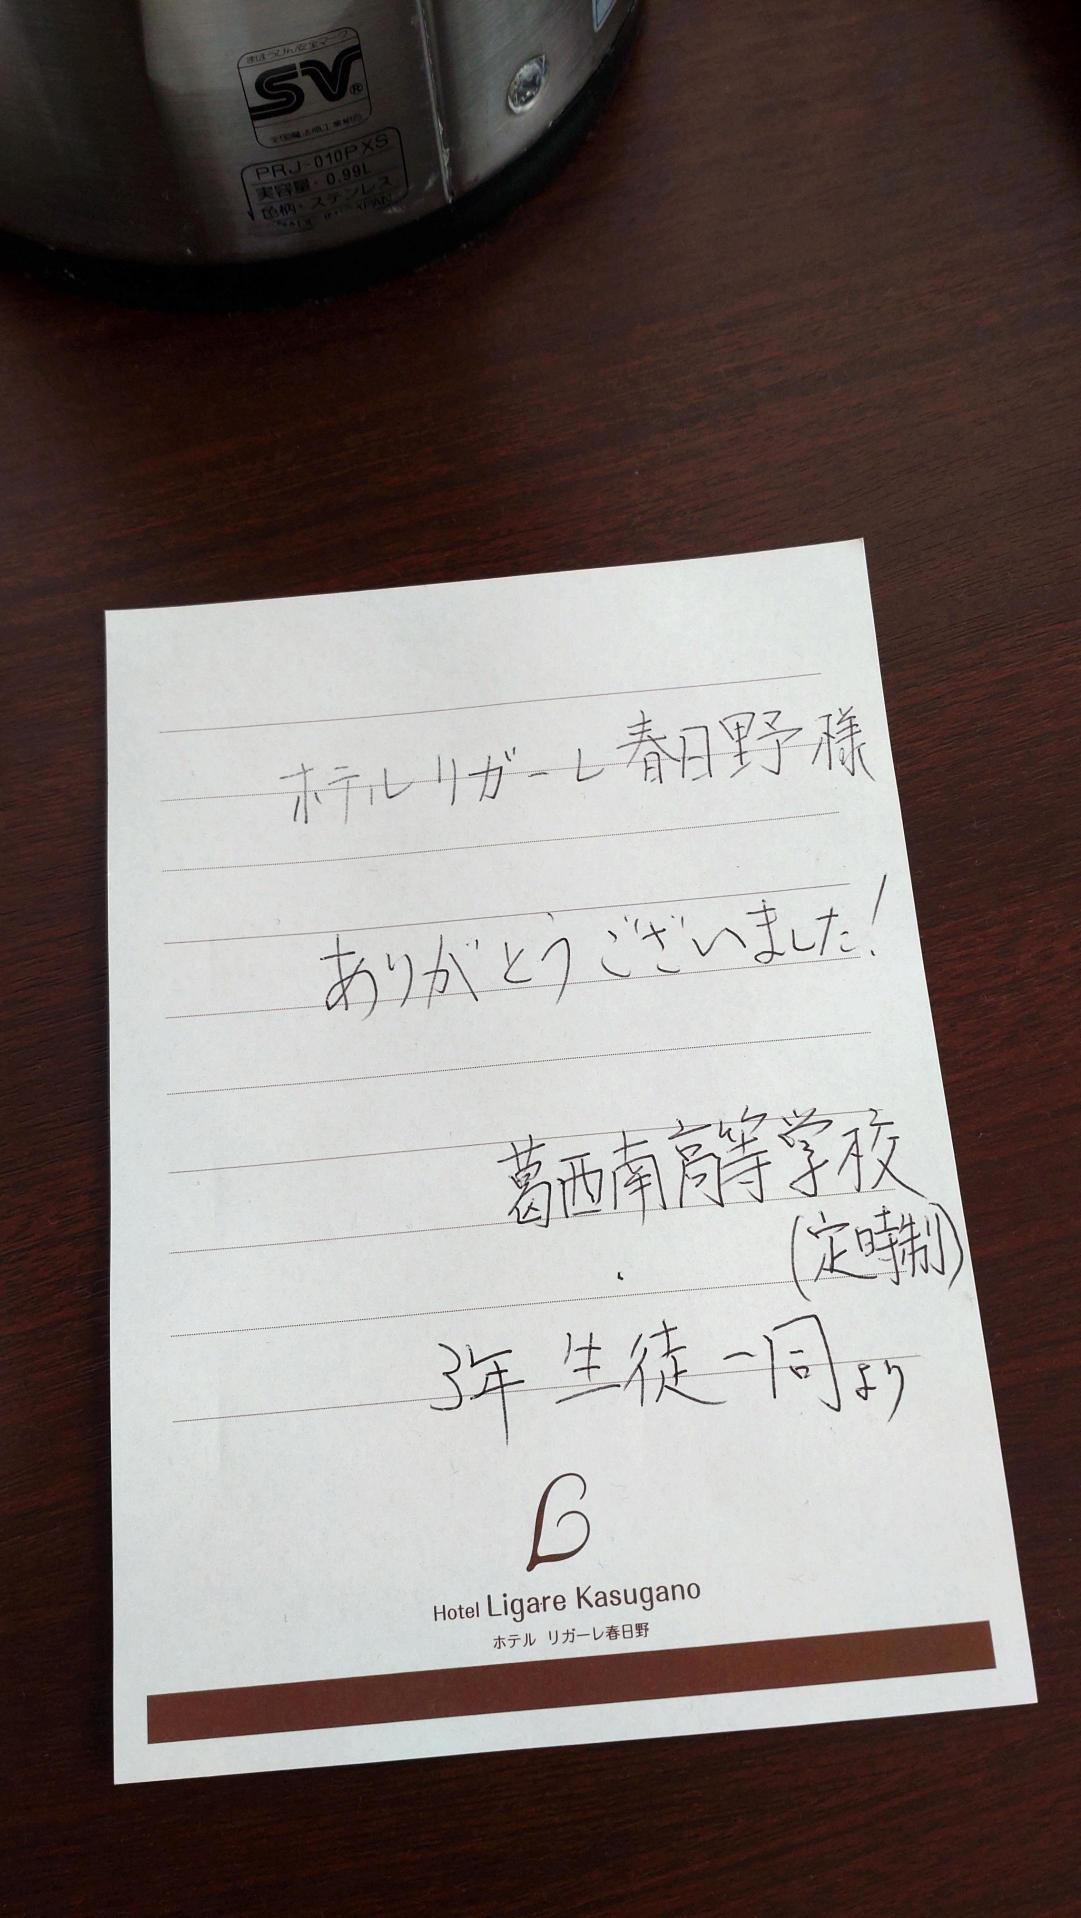 まほうびん安全マーク
SV®
全国魔法瓶工業組合
PRJ-010PXS
実容量・0.99L
色柄・ステンレス
MADE IN JAPAN
ホテルリガーレ春日野様
ありがとうございました!
葛西南高等学校
(定時制)
3年 生徒一同より
Hotel Ligare Kasugano
ホテル リガーレ春日野